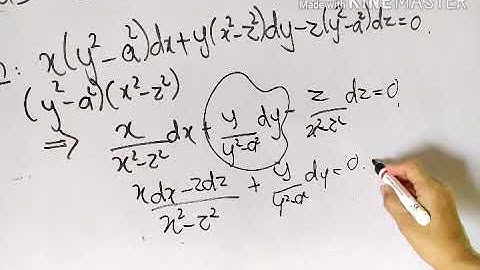 Made with KINEMASTER
x(y²-a²)dx+y(x²-z²)dy-z(y²-a²)dz=0.
(y²-a²)(x²-z²)
⇒ x/(x²-z²) dx + y/(y²-a²) dy - z/(x²-z²) dz=0.
(xdx-zdz)/(x²-z²) + y/(y²-a²) dy=0.